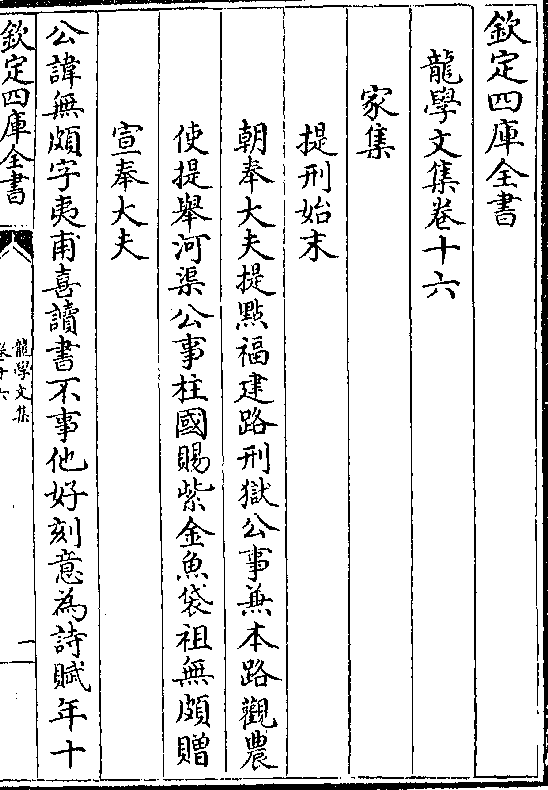 欽定四庫全書
龍學文集卷十六
家集
提刑始末
朝奉大夫提點福建路刑獄公事兼本路觀農
使提舉河渠公事柱國賜紫金魚袋祖無頗贈
宣奉大夫
公諱無頗字夷甫喜讀書不事他好刻意為詩賦年十
欽定四庫全書
龍學文集
卷十六
一